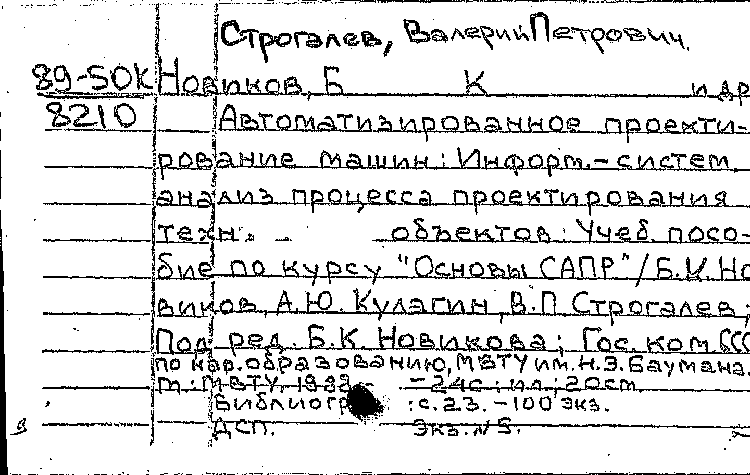 Строгалев, Валерий Петрович.
89-50К Новиков, Б К и др
8210 Автоматизированное проекти-
рование машин: Информ.-систем
анализ процесса проектирования
техн. объектов: Учеб. посо-
бие по курсу "Основы САПР"/Б.К. Но
виков, А.Ю. Кулагин, В.П Строгалев;
Под ред. Б.К. Новикова; Гос. ком. ССС
по нар. образованию, МВТУ им. Н.Э. Баумана.
М.: МВТУ, - 24с.: ил.; 20 см
Библиогр : с. 23. - 100 экз.
ДСП. Экз. N 5.